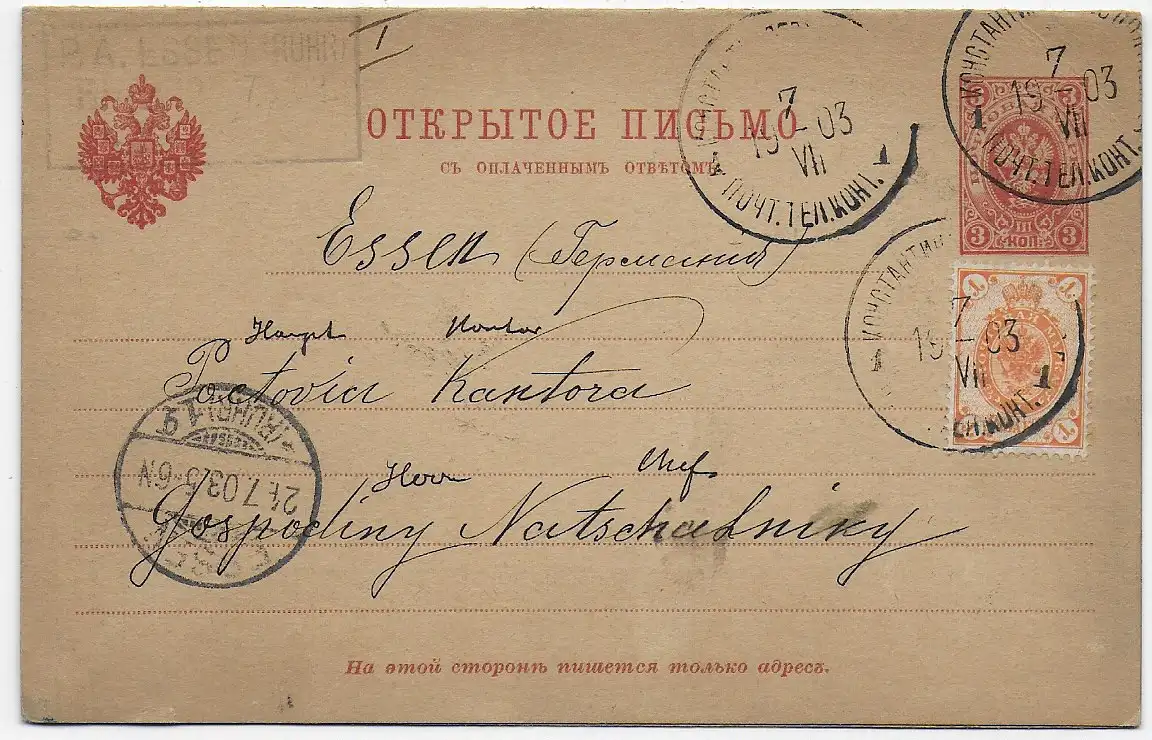 P.A. ESSEN (RUHR)
I
ОТКРЫТОЕ ПИСЬМО
СЪ ОПЛАЧЕННЫМЪ ОТВѢТОМЪ
3 3
3 КОП. 3
КОНСТАНТИ
7
19 – 03
VII
1 1
ПОЧТ.ТЕЛ.КОНТ.
КОНСТАНТИ
7
19 – 03
VII
1
ПОЧТ.ТЕЛ.КОНТ.
КОНСТАНТИН
7
19 – 03
VII
1 1
ЕЛ.КОНТ.
1. 1.
1. 1.
Essen (Германия)
Haupt Kontor
Pactovia Kantora
Herr Chef
Gospodiny Natschalniky
(RUHR) 1 g
21.7.03.5-6N
На этой сторонѣ пишется только адресъ.